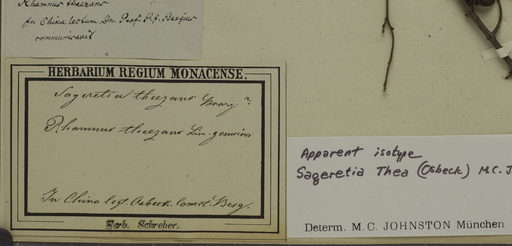 Rhamnus theezans
In China lectum Dn. Prof. P. J. Bergius
communicavit
HERBARIUM REGIUM MONACENSE.
Sageretia theezans Brong ?
Rhamnus theezans Lin. genuina
In China legt. Osbeck. comt. Berg.
Herb. Schreber.
Apparent isotype
Sageretia Thea (Osbeck) M.C. J
Determ. M. C. JOHNSTON München